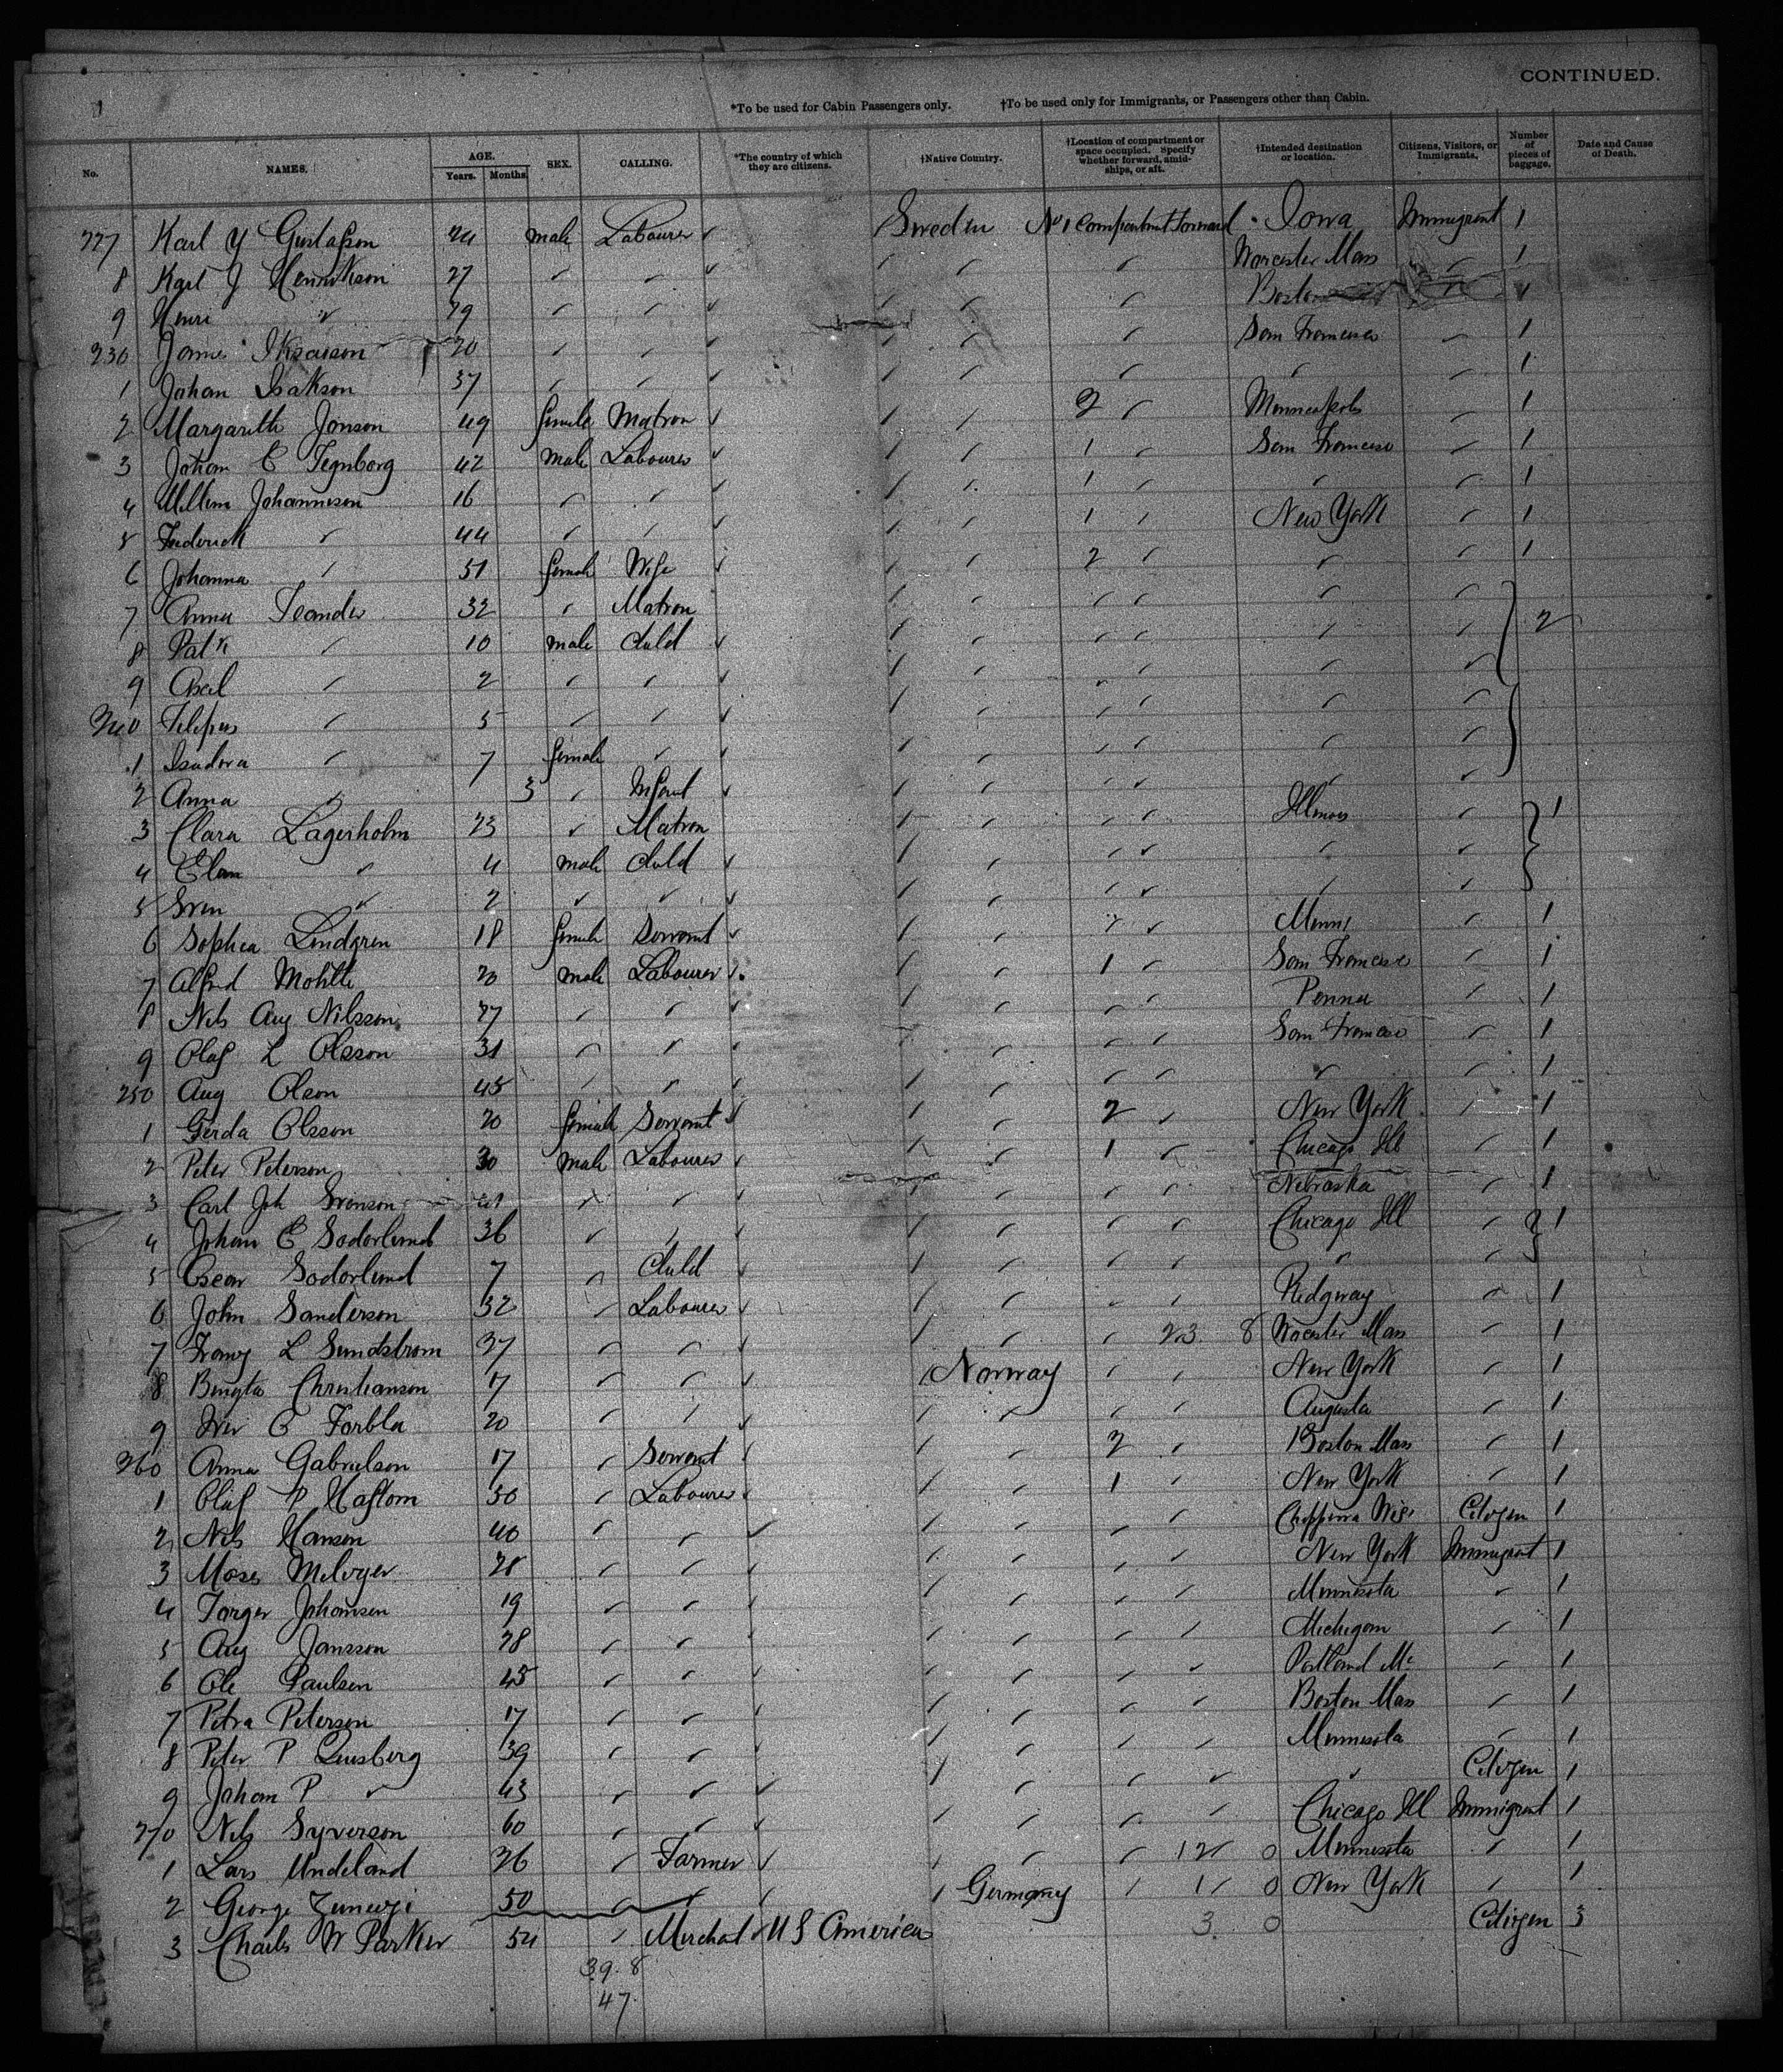 CONTINUED.
*To be used for Cabin Passengers only. †To be used only for Immigrants, or Passengers other than Cabin.
No. NAMES. AGE. Years. Months. SEX. CALLING. *The country of which they are citizens. †Native Country. †Location of compartment or space occupied. Specify whether forward, amidships, or aft. †Intended destination or location. Citizens, Visitors, or Immigrants. Number of pieces of baggage. Date and Cause of Death.
227 Karl Y Gustafson 24 male Labourer ✓ Sweden No 1 Compartment Forward Iowa Immigrant 1
8 Karl J Henrikson 27 ✓ ✓ ✓ Worcester Mass 1
9 Henri 29 Boston
230 20 San Francisco 1
1 Johan Isakson 37 1
2 Margareth Jonson 49 female Matron ✓ 2 Minneapolis 1
3 Johan C Tegnborg 42 male Labourer ✓ 1 San Francisco 1
4 Willem Johannison 16 1 1
5 Frederick 44 1 New York 1
6 Johanna 51 female Wife 2 1
7 Anna Leander 32 Matron
8 10 male Child ✓ 2
9 Axel 2
240 5
1 Isadora 7 female
2 Anna 3 Infant
3 Clara Lagerholm 23 Matron Illinois 1
4 4 male Child
5 Sven 2
6 Sophia Lindgren 18 female Servant ✓ Minn 1
7 Alfred 20 male Labourer 1 San Francisco 1
8 Nils Aug Nilsson 27 Penna 1
9 Olaf L Olsson 31 San Francisco 1
250 Aug Olson 45 1
1 Gerda Olsson 20 female Servant 2 New York 1
2 Peter Peterson 30 male Labourer 1 Chicago Ill 1
3 Carl Joh Svenson Nebraska 1
4 Johan C Soderlund 36 Chicago Ill 1
5 Oscar Soderlund 7 Child
6 John Sanderson 32 Labourer Ridgway 1
7 Franz L Sundstrom 37 23 8 Worcester Mass 1
8 Bengta Christianson 17 Norway New York 1
9 Iver 20 Augusta 1
260 Anna Gabrielson 17 Servant 2 Boston Mass 1
1 Olaf P 30 Labourer 1 New York 1
2 Nils Hanson 40 Chippewa Wis Citizen 1
3 Moses 28 New York Immigrant 1
4 Torger Johansen 19 Minnesota 1
5 Aug Jansson 28 Michigan 1
6 Ole Paulsen 45 Portland Me 1
7 Petra Peterson 17 Boston Mass 1
8 Peter P 39 Minnesota 1
9 Johan P 43 Citizen 1
270 Nils Syverson 60 Chicago Ill Immigrant 1
1 Lars Undeland 26 Farmer ✓ 12 0 Minnesota 1
2 George 50 Germany 1 0 New York 1
3 Charles W Parker 54 Merchant U S America 3 0 Citizen 3
39. 8
47